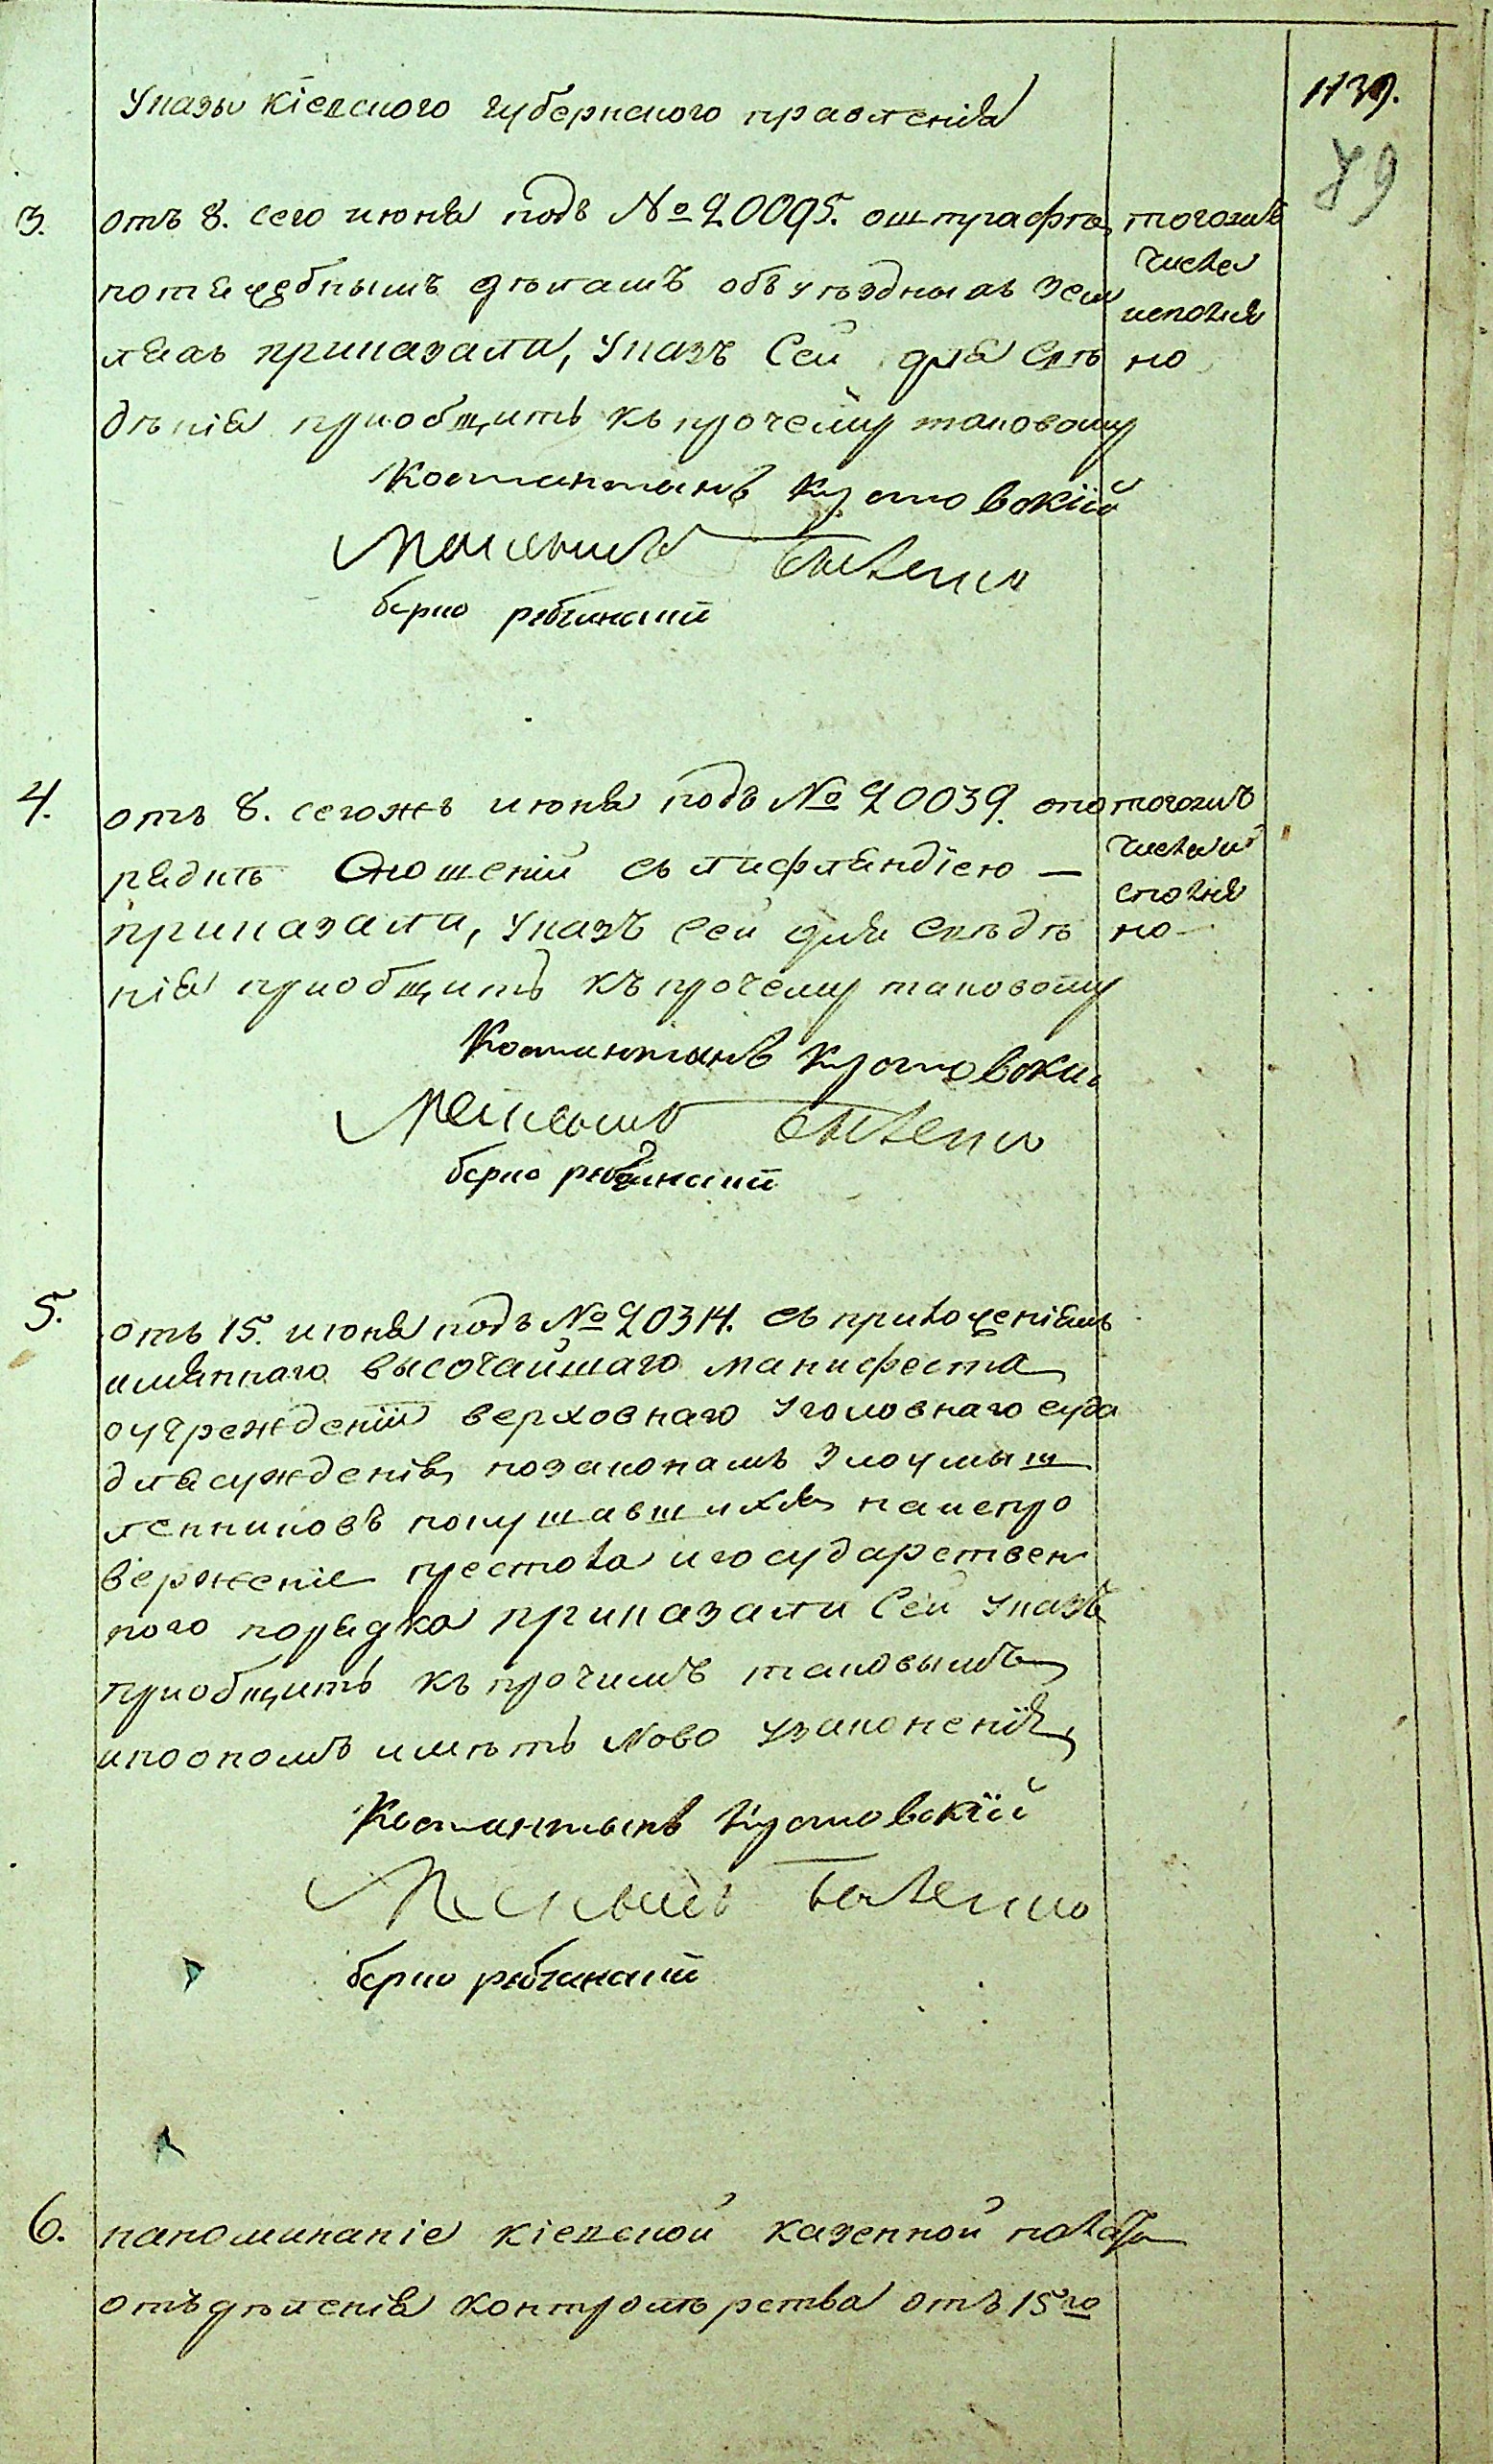 1139.
79
Указы Кіевского Губернского правленія
3. отъ 8. сего июня подъ № 20095. о штрафѣ
по тяжебнымъ дѣламъ объ уѣздныхъ зем
ляхъ приказали, Указъ Сей для свѣ
дѣнія приобщить къ прочему таковому
тогожъ
числа
исполне
но
Костантинъ Кутовский
берко рабчинский
4. отъ 8. сегожъ июня подъ № 20039. о по
рядкѣ Сношеній съ лифляндіею —
приказали, Указъ Сей для Свѣдѣ
нія приобщить къ прочему таковому
тогожъ
числа и
сполне
но
Костантинъ Кутовский
берко рабчинский
5. отъ 15. июня подъ № 20314. съ приложеніемъ
имяннаго высочайшаго манифеста
о учрежденіи верховнаго Уголовнаго суда
для сужденія по законамъ Злоумыш
ленниковъ покушавшихся на испро
вержение престола и государствен
ного порядка приказали Сей Указъ
приобщить къ прочимъ таковымъ
и по ономъ имѣть Ново узаконенія
Костантинъ Кутовскій
берко рабчинский
6. напоминаніе Кіевской Казенной пала
отъ дѣленія контролѣрства отъ 15го